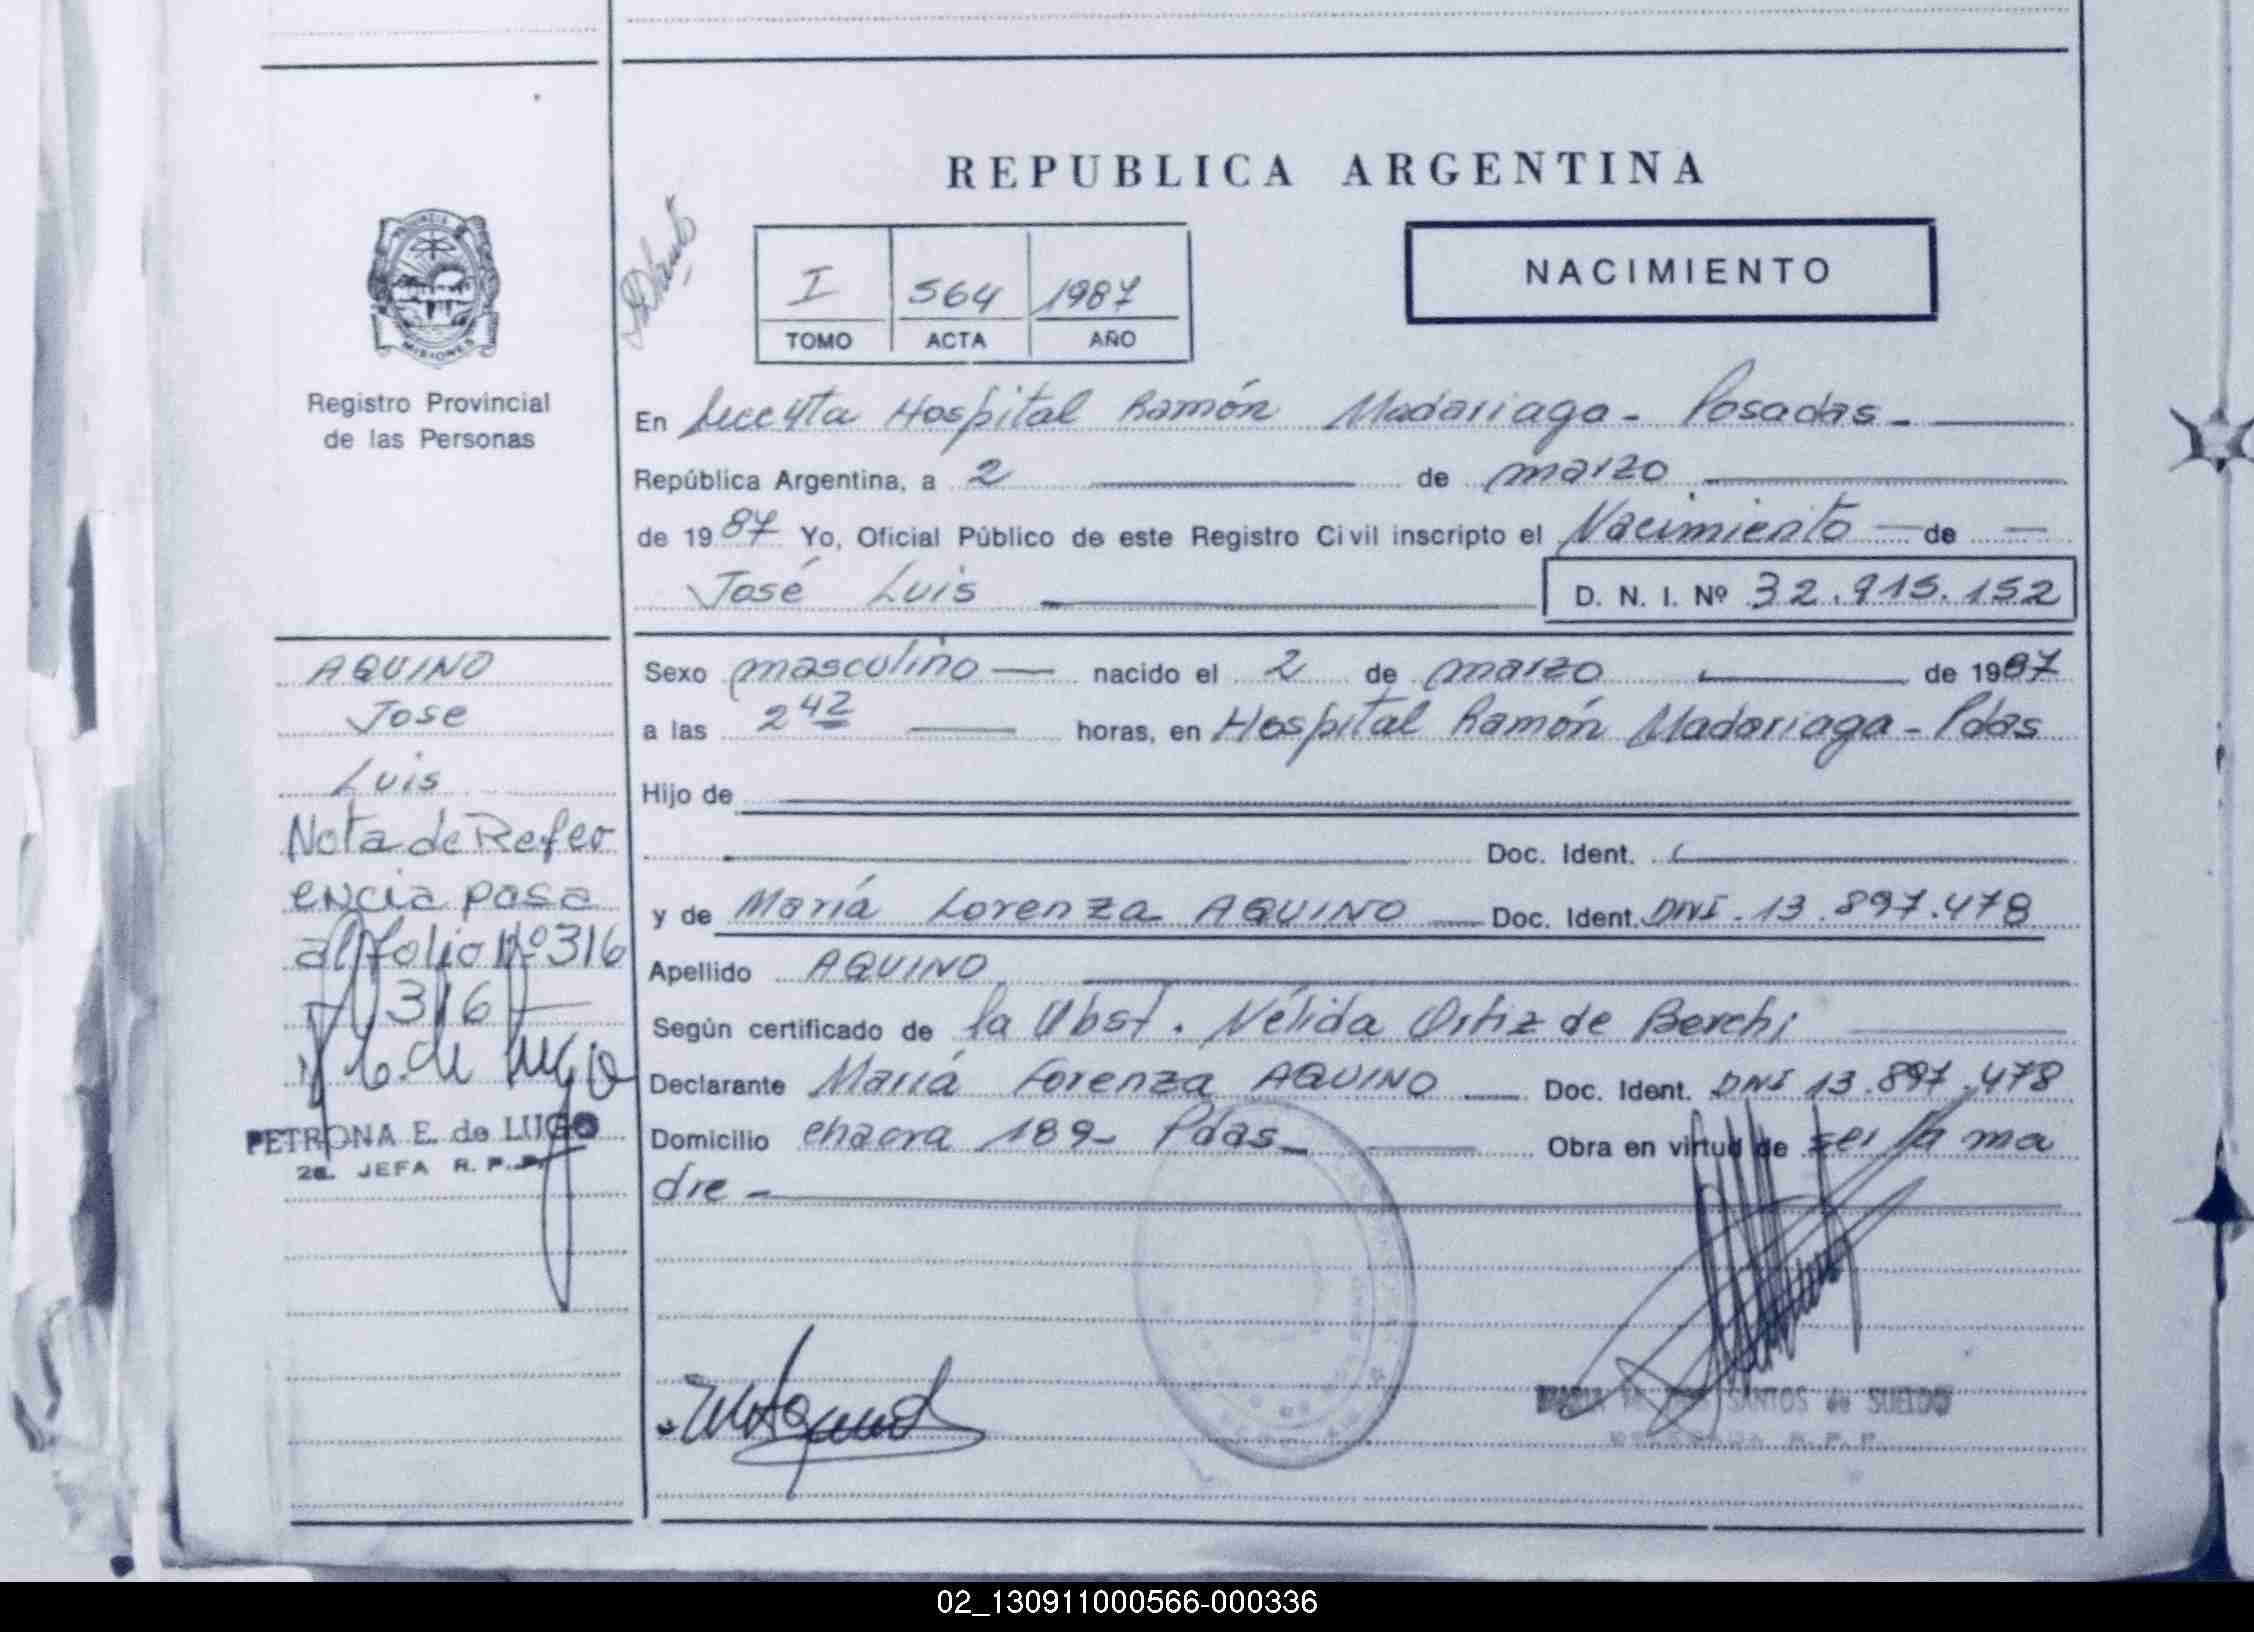 REPUBLICA ARGENTINA
NACIMIENTO
I 564 1987
TOMO ACTA AÑO
PROVINCIA DE
MISIONES
Registro Provincial
de las Personas
En Hospital Ramón Madariaga - Posadas -
República Argentina, a 2 de marzo
de 1987 Yo, Oficial Público de este Registro Civil inscripto el Nacimiento de
José Luis
D. N. I. Nº 32.915.152
AQUINO
Jose
Luis
Nota de Refer
encia pasa
al folio Nº 316
- 316 -
PETRONA E. de LUGO
2a. JEFA R. P. P.
Sexo masculino nacido el 2 de marzo de 1987
a las 2 42 horas, en Hospital Ramón Madariaga - Pdas
Hijo de
Doc. Ident.
y de María Lorenza AQUINO Doc. Ident. DNI. 13.897.478
Apellido AQUINO
Según certificado de la Obst. Nélida Ortiz de Berchi
Declarante María Lorenza AQUINO Doc. Ident. DNI 13.897.478
Domicilio chacra 189 - Pdas - Obra en virtud de ser la ma
dre -
SANTOS de SUELDO
02_130911000566-000336